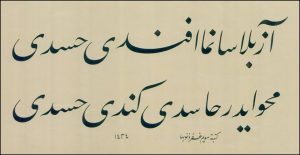 آز بلا سانما افندی حسدی
محو ایدر حاسدی کندی حسدی